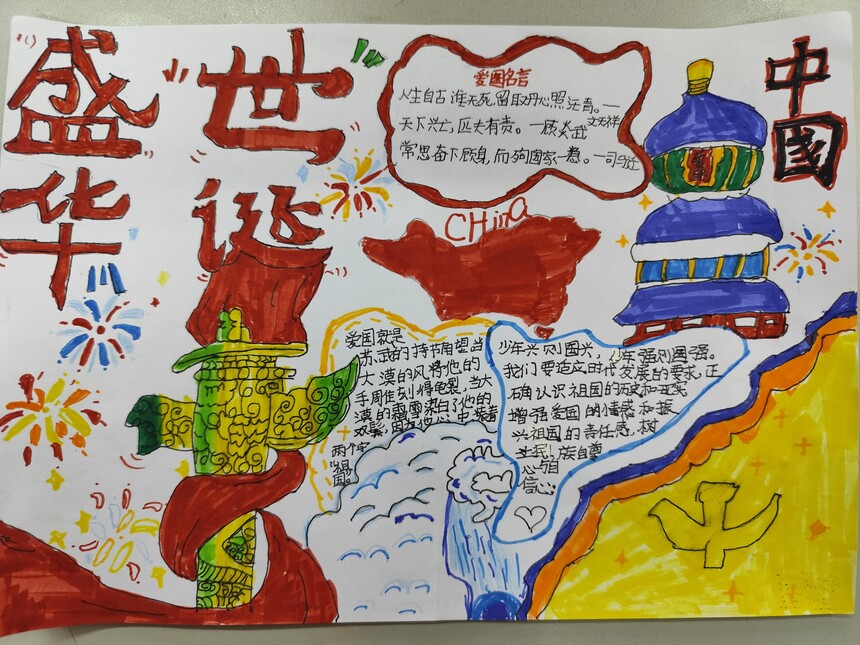 盛世
华诞
中国
爱国名言
人生自古谁无死,留取丹心照汗青。一
文天祥
天下兴亡,匹夫有责。一顾炎武
常思奋不顾身,而殉国家之急。一司马迁
CHina
爱国就是
苏武的持节南望当
大漠的风将他的
手周隹刻得龟裂,当大
漠的霜雪染白了他的
双鬓,因为他心中装着
两个字
"祖
国。
少年兴则国兴,少年强则国强。
我们要适应时代发展的要求,正
确认识祖国的历史和现实
增强爱国的情感和振
兴祖国的责任感,树
立民族自尊
心与自
信心